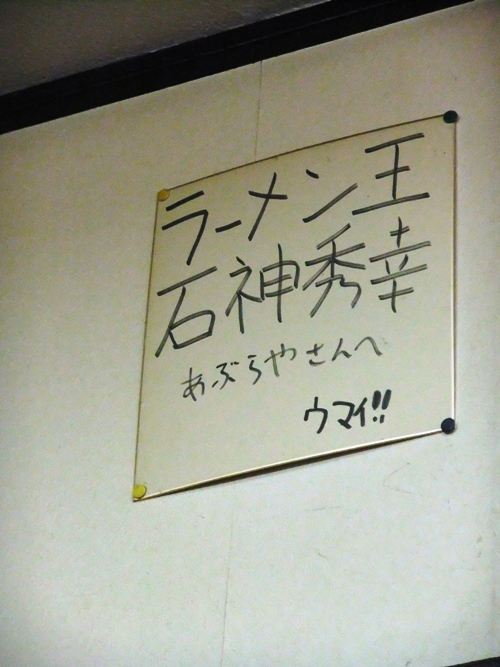 ラーメン王
石神秀幸
あぶらやさんへ
ウマイ!!